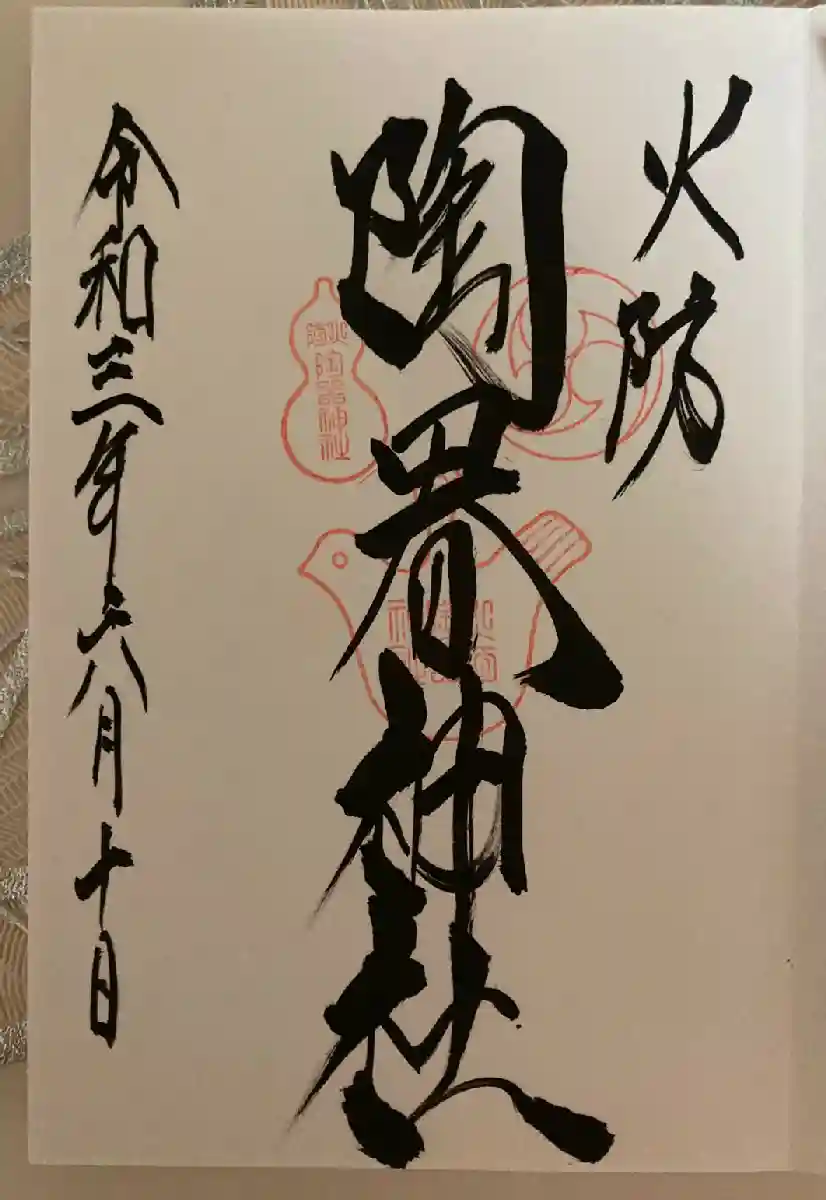 火防
陶器神社
令和三年六月十日
火防
陶器神社